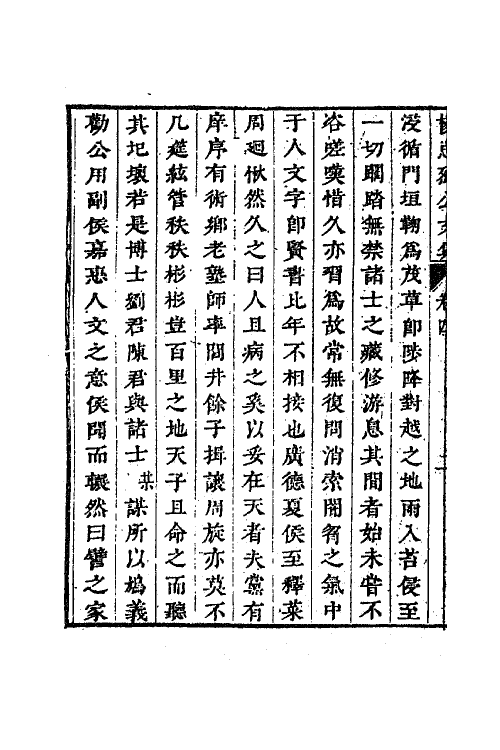 沒循門垣鞠爲茂草即陟降對越之地雨入苔侵至
一切踏無禁諸士之藏修游息其間者始未嘗不
咨嗟奬惜久亦習爲故常無復問消索闇䝉之氣中
于人文字卽賢書比年不相接也廣德夏侯至釋菜
周迴愀然久之曰人且病之奚以妥在天者夫黨有
庠序有術鄉老塾師率閭井餘子揖讓周旋亦莫不
几筵絃管秩秩彬彬豈百里之地天子且命之而聽
其圮壞若是博士劉君陳君與諸士某謀所以搗義
勸公用副侯嘉惠人文之意侯聞而囅然曰譬之家